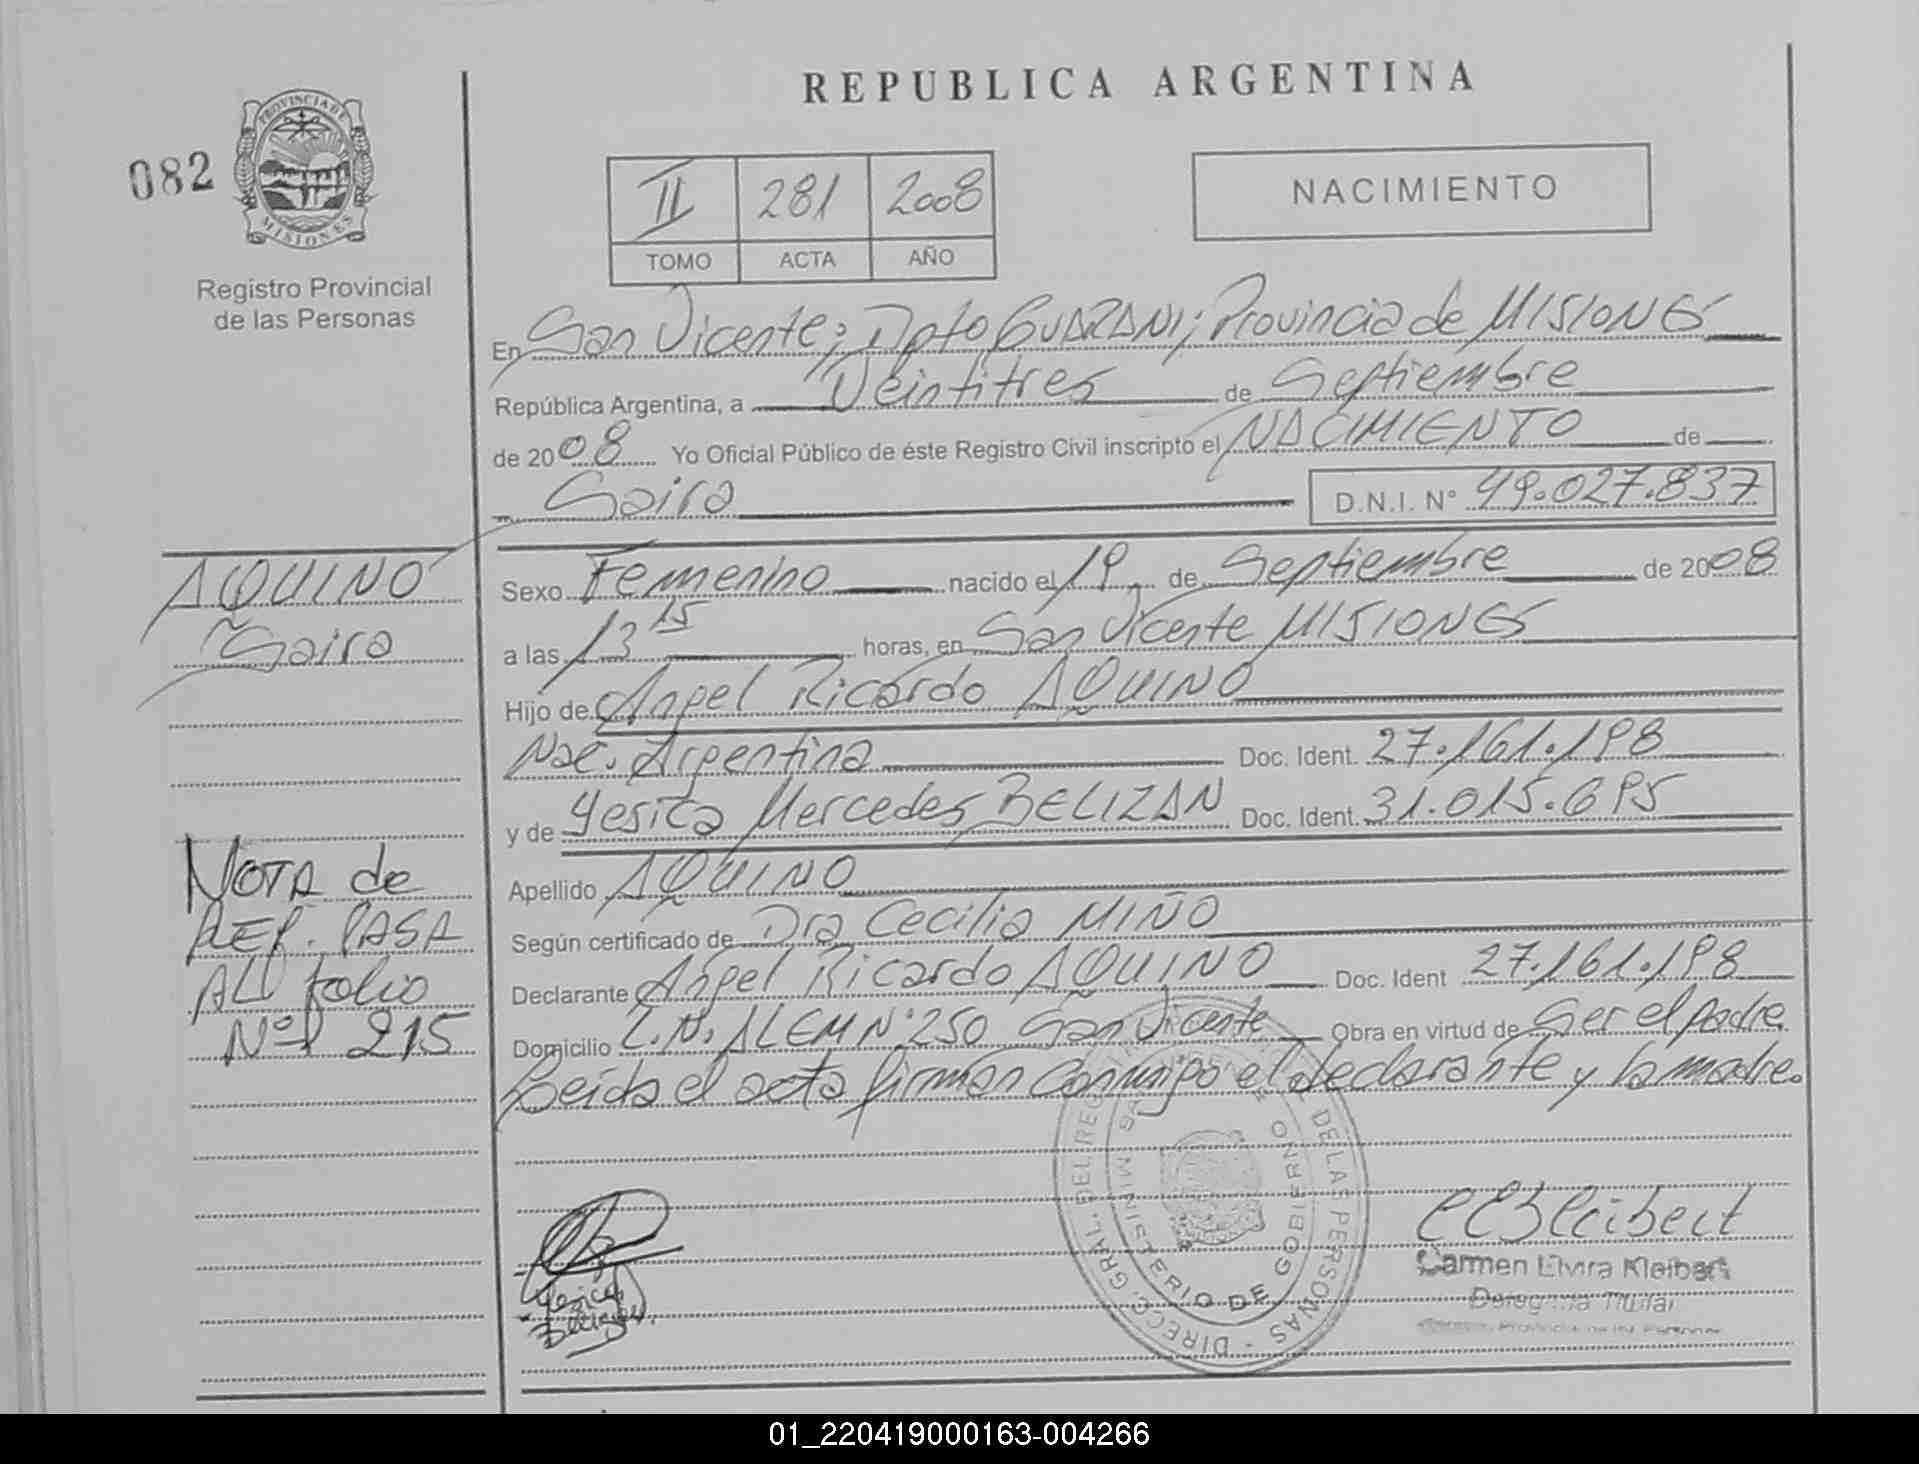 REPUBLICA ARGENTINA
082
PROVINCIA DE
MISIONES
Registro Provincial
de las Personas
II 281 2008
TOMO ACTA AÑO
NACIMIENTO
En San Vicente; Dpto GUARANI; Provincia de MISIONES
República Argentina, a Veintitres de Septiembre
de 2008 Yo Oficial Público de éste Registro Civil inscripto el NACIMIENTO de
Saira D.N.I. N° 49.027.837
AQUINO
Saira
Sexo Femenino nacido el 19 de Septiembre de 2008
a las 13 15 horas, en San Vicente MISIONES
Hijo de Angel Ricardo AQUINO
Nac. Argentina Doc. Ident. 27.161.198
y de Yesica Mercedes BELIZAN Doc. Ident. 31.015.695
Apellido AQUINO
Según certificado de Dra Cecilia MIÑO
Declarante Angel Ricardo AQUINO Doc. Ident 27.161.198
Domicilio L.N. ALEM N°250 San Vicente Obra en virtud de Ser el padre
Leida el acta firman conmigo el declarante y la madre.
NOTA de
REF. PASA
AL folio
Nº 215
Yesica
Belizan
DIRECC. GRAL. DEL REG DE LAS PERSONAS
MINISTERIO DE GOBIERNO
Carmen Elvira Kleibert
Delegada Titular
01_220419000163-004266